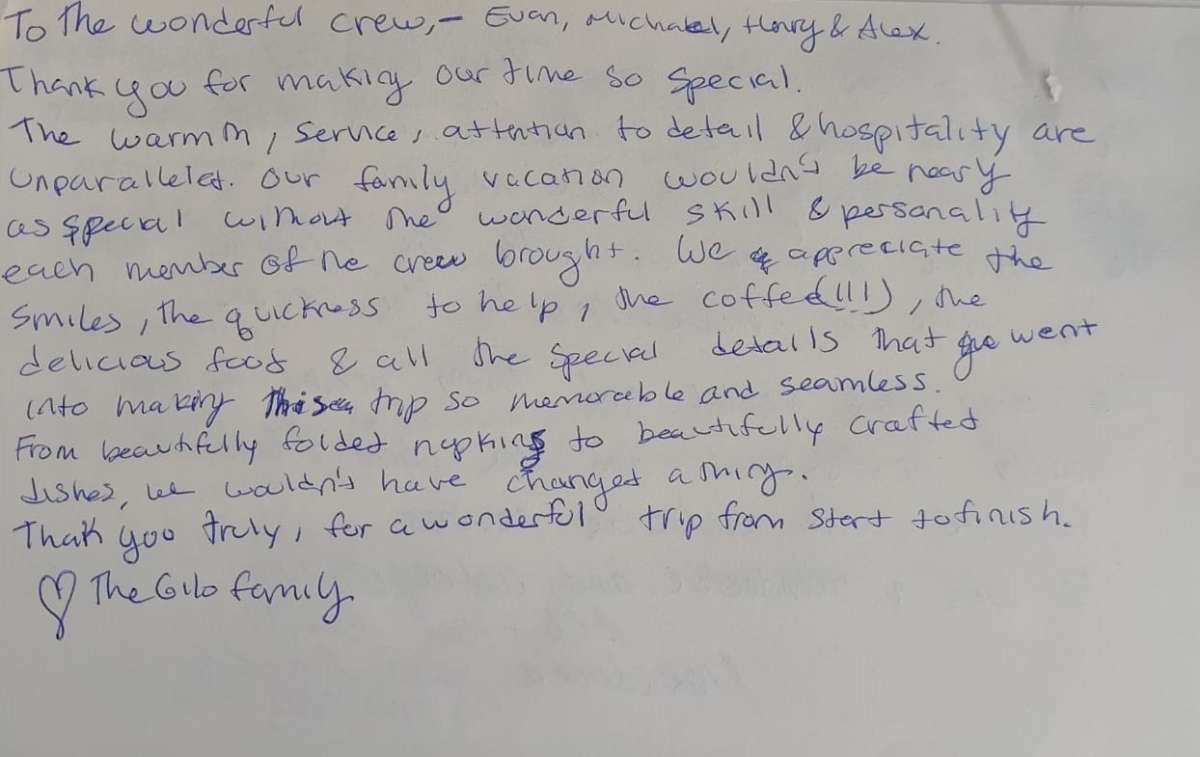 To the wonderful crew,- Evan, Michael, Henry & Alex.
Thank you for making our time so special.
The warmth, service, attention to detail & hospitality are
unparalleled. Our family vacation wouldn't be nearly
as special without the wonderful skill & personality
each member of the crew brought. We appreciate the
smiles, the quickness to help, the coffee(!!!), the
delicious food & all the special details that went
into making this trip so memorable and seamless.
From beautifully folded napkins to beautifully crafted
dishes, we wouldn't have changed a thing.
Thank you truly, for a wonderful trip from start to finish.
♡ The Gilo family